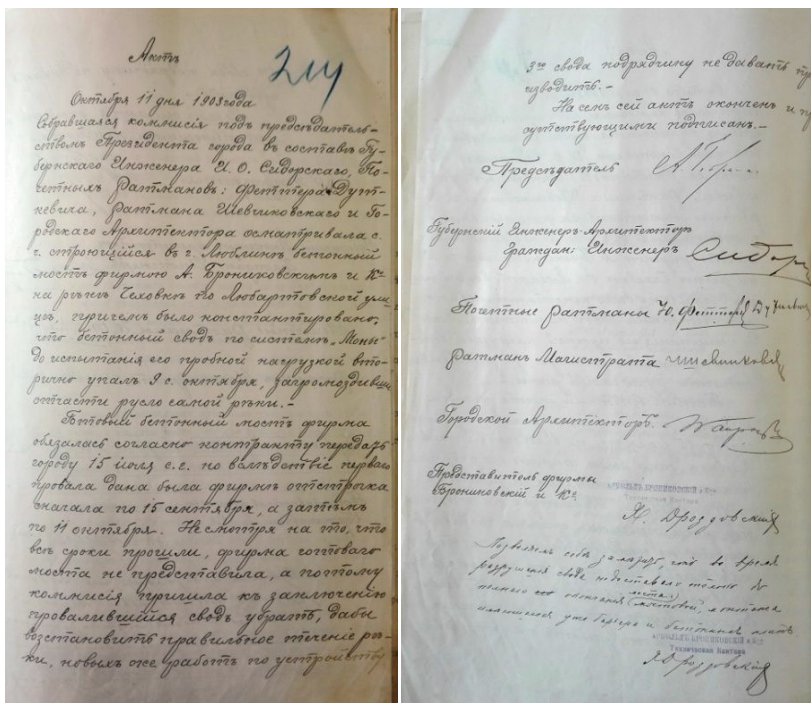 Актъ
214
Октября 11 дня 1903 года
Собравшаяся коммисія подъ предсѣдатель-
ствомъ Президента города въ составѣ Гу-
бернскаго Инженера И. О. Сидорскаго, По-
четныхъ Ратмановъ: Феттера, Дут-
кевича, Ратмана Шевчиковскаго и Го-
родскаго Архитектора осматривала с.
ч. строющійся въ г. Люблинѣ бетонный
мостъ фирмою А. Брониковскимъ и Кº
на рѣкѣ Чеховкѣ по Любартовской ули-
цѣ, причемъ было константировано,
что бетонный сводъ по системѣ „Монье"
до испытанія его пробной нагрузкой вто-
рично упалъ 9 с. октября, загромоздивши
отчасти русло самой рѣки.-
бетонный мостъ фирма
обязалась согласно контракту передать
городу 15 іюля с.г. но вслѣдствіе перваго
провала дана была фирмѣ отсрочка
сначала по 15 сентября, а затѣмъ
по 11 октября. Несмотря на то, что
всѣ сроки прошли, фирма готоваго
моста не представила, а потому
коммисія пришла къ заключенію
провалившійся сводъ убрать, дабы
возстановить правильное теченіе рѣ-
ки, новыхъ же работъ по устройству
3го свода подрядчику не давать пр
изводить.-
На семъ сей актъ оконченъ и п
сутствующими подписанъ.-
Предсѣдатель
Губернскій Инженеръ-Архитекторъ
Граждан: Инженеръ Сидор
Почетные Ратманы Ю. Феттеръ
Ратманъ Магистрата
Городской Архитекторъ
Представитель фирмы
Брониковскій и Кº
АРНОЛЬДЪ БРОНИКОВСКІЙ и Кº
Техническая Контора
Я. Дроздовскій
Позволяю себѣ что во время
разрушенія свода
моста
и
АРНОЛЬДЪ БРОНИКОВСКІЙ и Кº
Техническая Контора
Я Дроздовскій